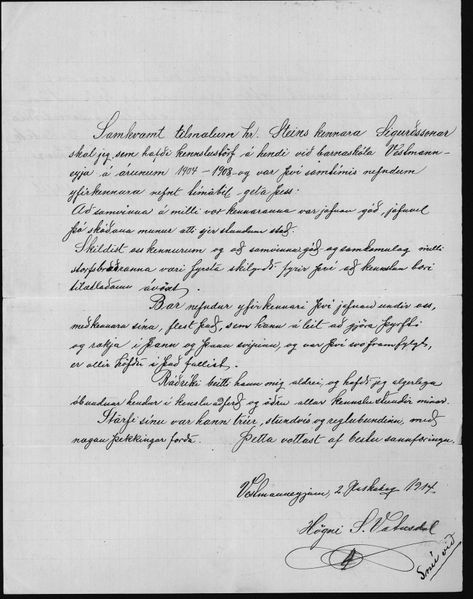 Samkvæmt tilmælum hr. Steins kennara Sigurðssonar
skal jeg, sem hafði kennslustörf á hendi við barnaskóla Vestmann-
eyja á árunum 1904 - 1908 og var því samtímis nefndum
yfirkennara nefnt tímabil - geta þess:
Að samvinna á milli vor kennaranna var jafnan góð, jafnvel
þó skoðana munur ætti sjer stundum stað.
Skildist oss kennurum og að samvinna góð og samkomulag milli
starfsbræðranna væri fyrsta skilyrði fyrir því að kennslan bæri
tilætlaðann ávöxt.
Bar nefndur yfirkennari því jafnan undir oss,
meðkennara sína, flest það, sem hann áleit að gjöra þyrfti
og rækja í þann og þann svipinn, og var því svo framfylgt,
er allir höfðu í það fallist.
Ráðríki beitti hann mig aldrei, og hafði jeg algerlega
óbundnar hendur í kensluaðferð og öðru allar kennslustundir mínar.
Starfi sínu var hann trúr, stundvís og reglubundinn, með
nægan þekkingar forða. Þetta vottast af bestu sannfæringu.
Vestmannaeyjum, 2. 1914.
Högni S.
Snú við